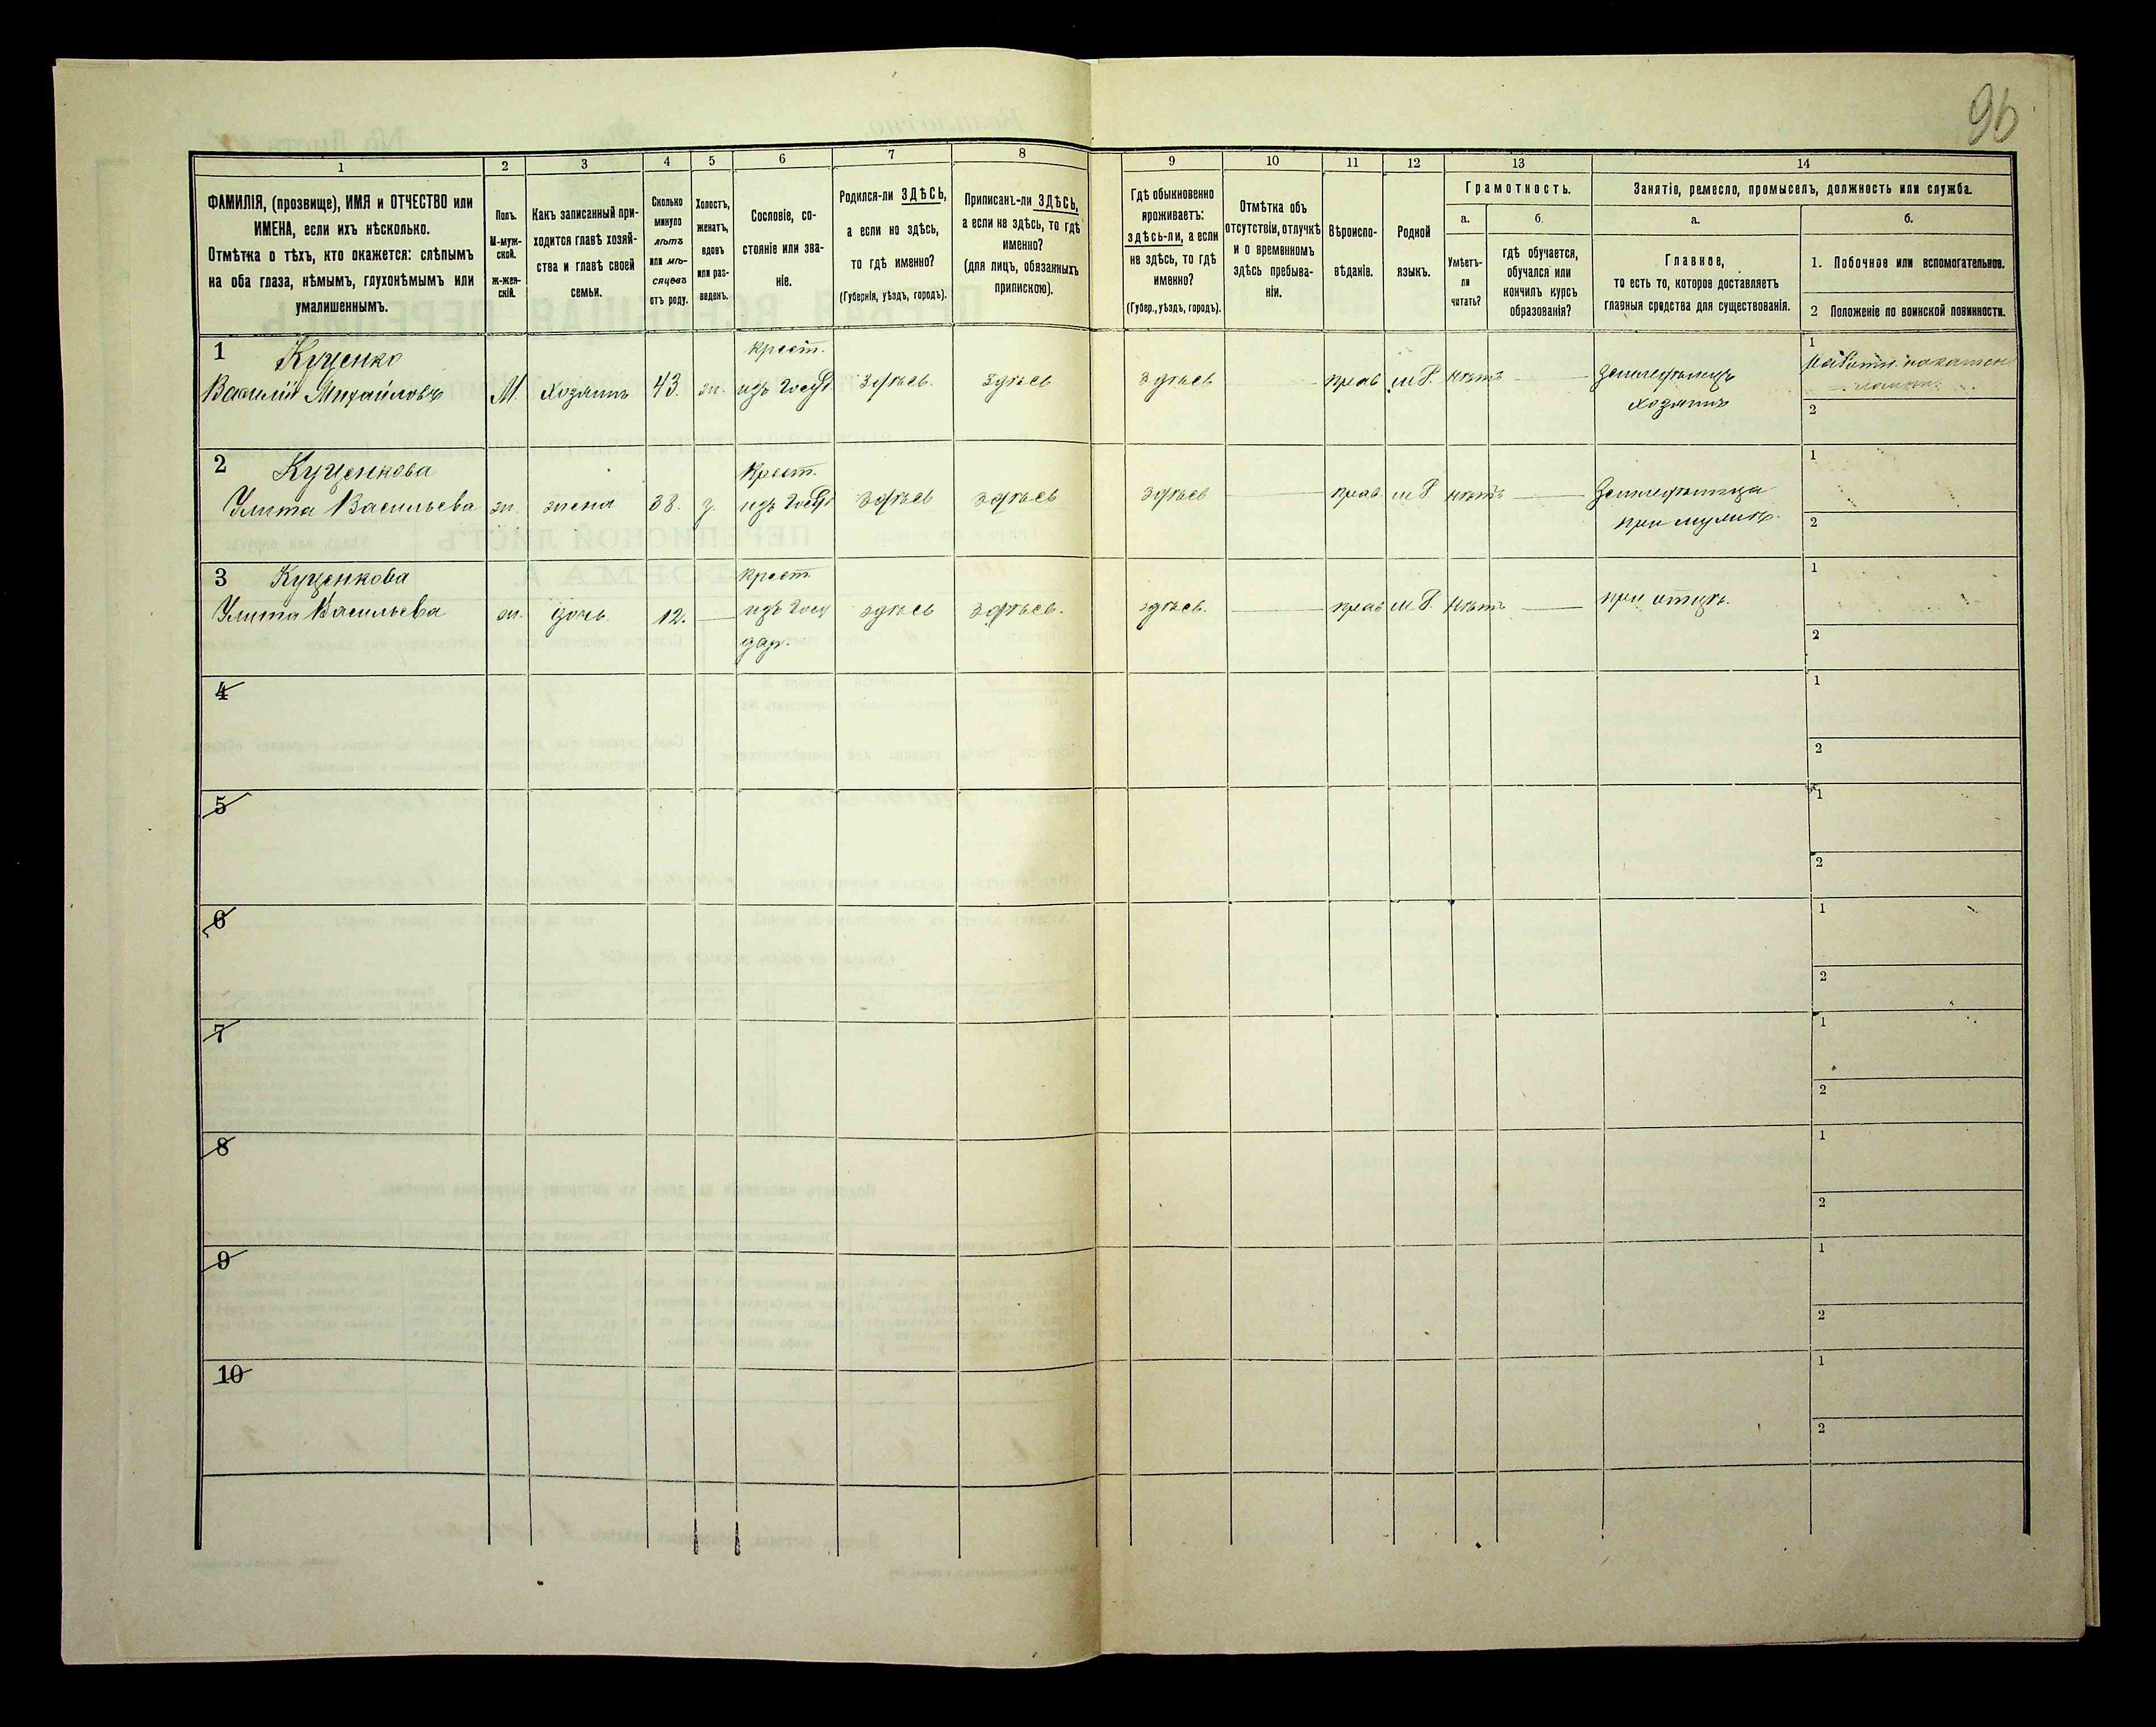 96
1 2 3 4 5 6 7 8 9 10 11 12 13 14
ФАМИЛІЯ, (прозвище), ИМЯ и ОТЧЕСТВО или
ИМЕНА, если ихъ нѣсколько.
Отмѣтка о тѣхъ, кто окажется: слѣпымъ
на оба глаза, нѣмымъ, глухонѣмымъ или
умалишеннымъ.
Полъ.
М-муж-
ской.
ж-жен-
скій.
Какъ записанный при-
ходится главѣ хозяй-
ства и главѣ своей
семьи.
Сколько
минуло
лѣтъ
или мѣ-
сяцевъ
отъ роду.
Холостъ,
женатъ,
вдовъ
или раз-
веденъ.
Сословіе, со-
стояніе или зва-
ніе.
Родился-ли ЗДѢСЬ,
а если не здѣсь,
то гдѣ именно?
(Губернія, уѣздъ, городъ).
Приписанъ-ли ЗДѢСЬ,
а если не здѣсь, то гдѣ
именно?
(для лицъ, обязанныхъ
припискою).
Гдѣ обыкновенно
проживаетъ:
здѣсь-ли, а если
не здѣсь, то гдѣ
именно?
(Губер., уѣздъ, городъ).
Отмѣтка объ
отсутствіи, отлучкѣ
и о временномъ
здѣсь пребыва-
ніи.
Вѣроиспо-
вѣданіе.
Родной
языкъ.
Грамотность.
а.
Умѣетъ-
ли
читать?
б.
гдѣ обучается,
обучался или
кончилъ курсъ
образованія?
Занятіе, ремесло, промыселъ, должность или служба.
а.
Главное,
то есть то, которое доставляетъ
главныя средства для существованія.
б.
1. Побочное или вспомогательное.
2 Положеніе по воинской повинности.
1 Куценко
Василій Михайловъ М. хозяинъ 43. ж. крест. изъ Госуд здѣсь. здѣсь здѣсь прав м.Р. нѣтъ Земледѣлецъ
хозяинъ
1
2
2 Куценкова
Улита Васильева ж. жена 38. з. Крест. изъ Госуд здѣсь здѣсь здѣсь прав м Р нѣтъ Земледѣлица
при мужѣ.
1
2
3 Куценкова
Улита Васильева ж. дочь 12. крест. изъ Госу дар. здѣсь здѣсь. здѣсь. прав м Р. нѣтъ при отцѣ.
1
2
4
1
2
5
1
2
6
1
2
7
1
2
8
1
2
9
1
2
10
1
2